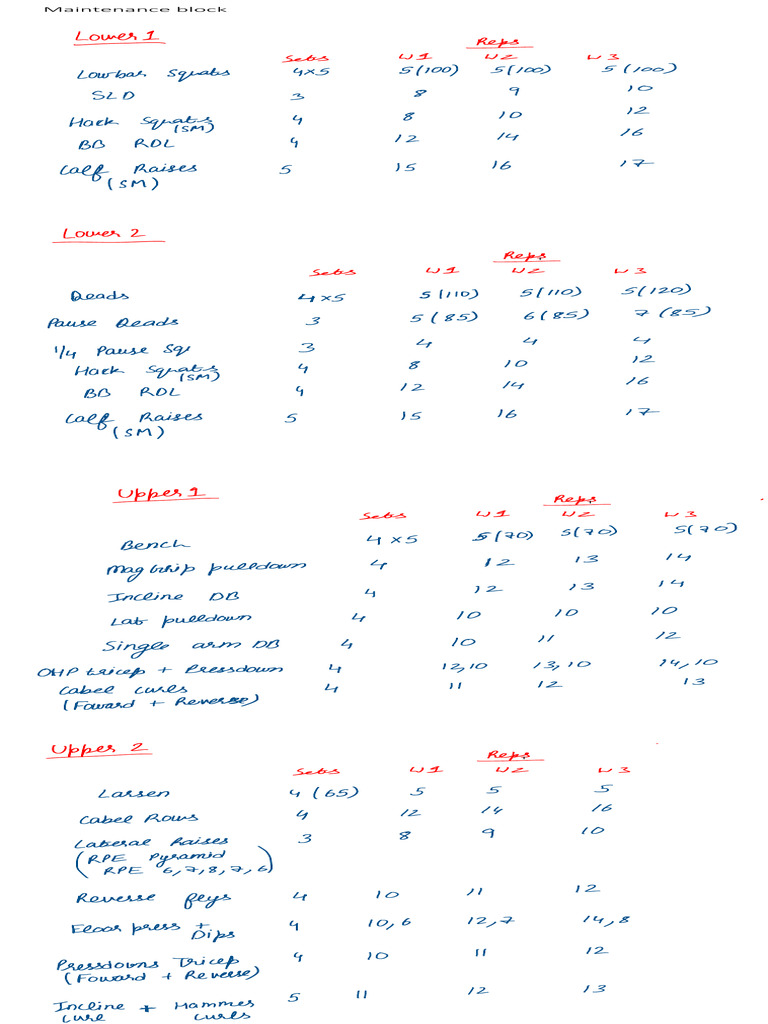 Maintenance block
Lower 1
Reps
Sets W1 W2 W3
Lowbar Squats 4x5 5(100) 5(100) 5(100)
SLD 3 8 9 10
Hack Squats 4 8 10 12
(SM)
BB RDL 4 12 14 16
Calf Raises 5 15 16 17
(SM)
Lower 2
Reps
Sets W1 W2 W3
Deads 4x5 5(110) 5(110) 5(120)
Pause Deads 3 5(85) 6(85) 7(85)
1/4 Pause Sq 3 4 4 4
Hack Squats 4 8 10 12
(SM)
BB RDL 4 12 14 16
Calf Raises 5 15 16 17
(SM)
Upper 1
Reps
Sets W1 W2 W3
Bench 4x5 5(70) 5(70) 5(70)
Mag Grip pulldown 4 12 13 14
Incline DB 4 12 13 14
Lat pulldown 4 10 10 10
Single arm DB 4 10 11 12
OHP tricep + Pressdown 4 12,10 13,10 14,10
Cabel curls 4 11 12 13
(Foward + Reverse)
Upper 2
Reps
Sets W1 W2 W3
Larsen 4(65) 5 5 5
Cabel Rows 4 12 14 16
Lateral Raises 3 8 9 10
(RPE Pyramid
RPE 6,7,8,7,6)
Reverse flys 4 10 11 12
Floor press + 4 10,6 12,7 14,8
Dips
Pressdowns Tricep 4 10 11 12
(Foward + Reverse)
Incline + Hammer 5 11 12 13
curl curls